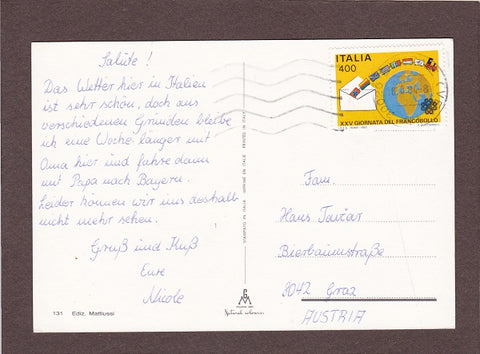 Salüte!
Das Wetter hier in Italien
ist sehr schön, doch aus
verschiedenen Gründen bleibe
ich eine Woche länger mit
Oma hier und fahre dann
mit Papa nach Bayern.
Leider können wir uns deshalb
nicht mehr sehen.
Gruß und Kuß
Eure
Nicole
131 Ediz. Mattiussi
STAMPATO IN ITALIA PRINTED IN ITALY
Natural colour
ITALIA
400
XXV GIORNATA DEL FRANCOBOLLO
Fam.
Hans Tavčar
Bierbaumstraße
8042 Graz
AUSTRIA